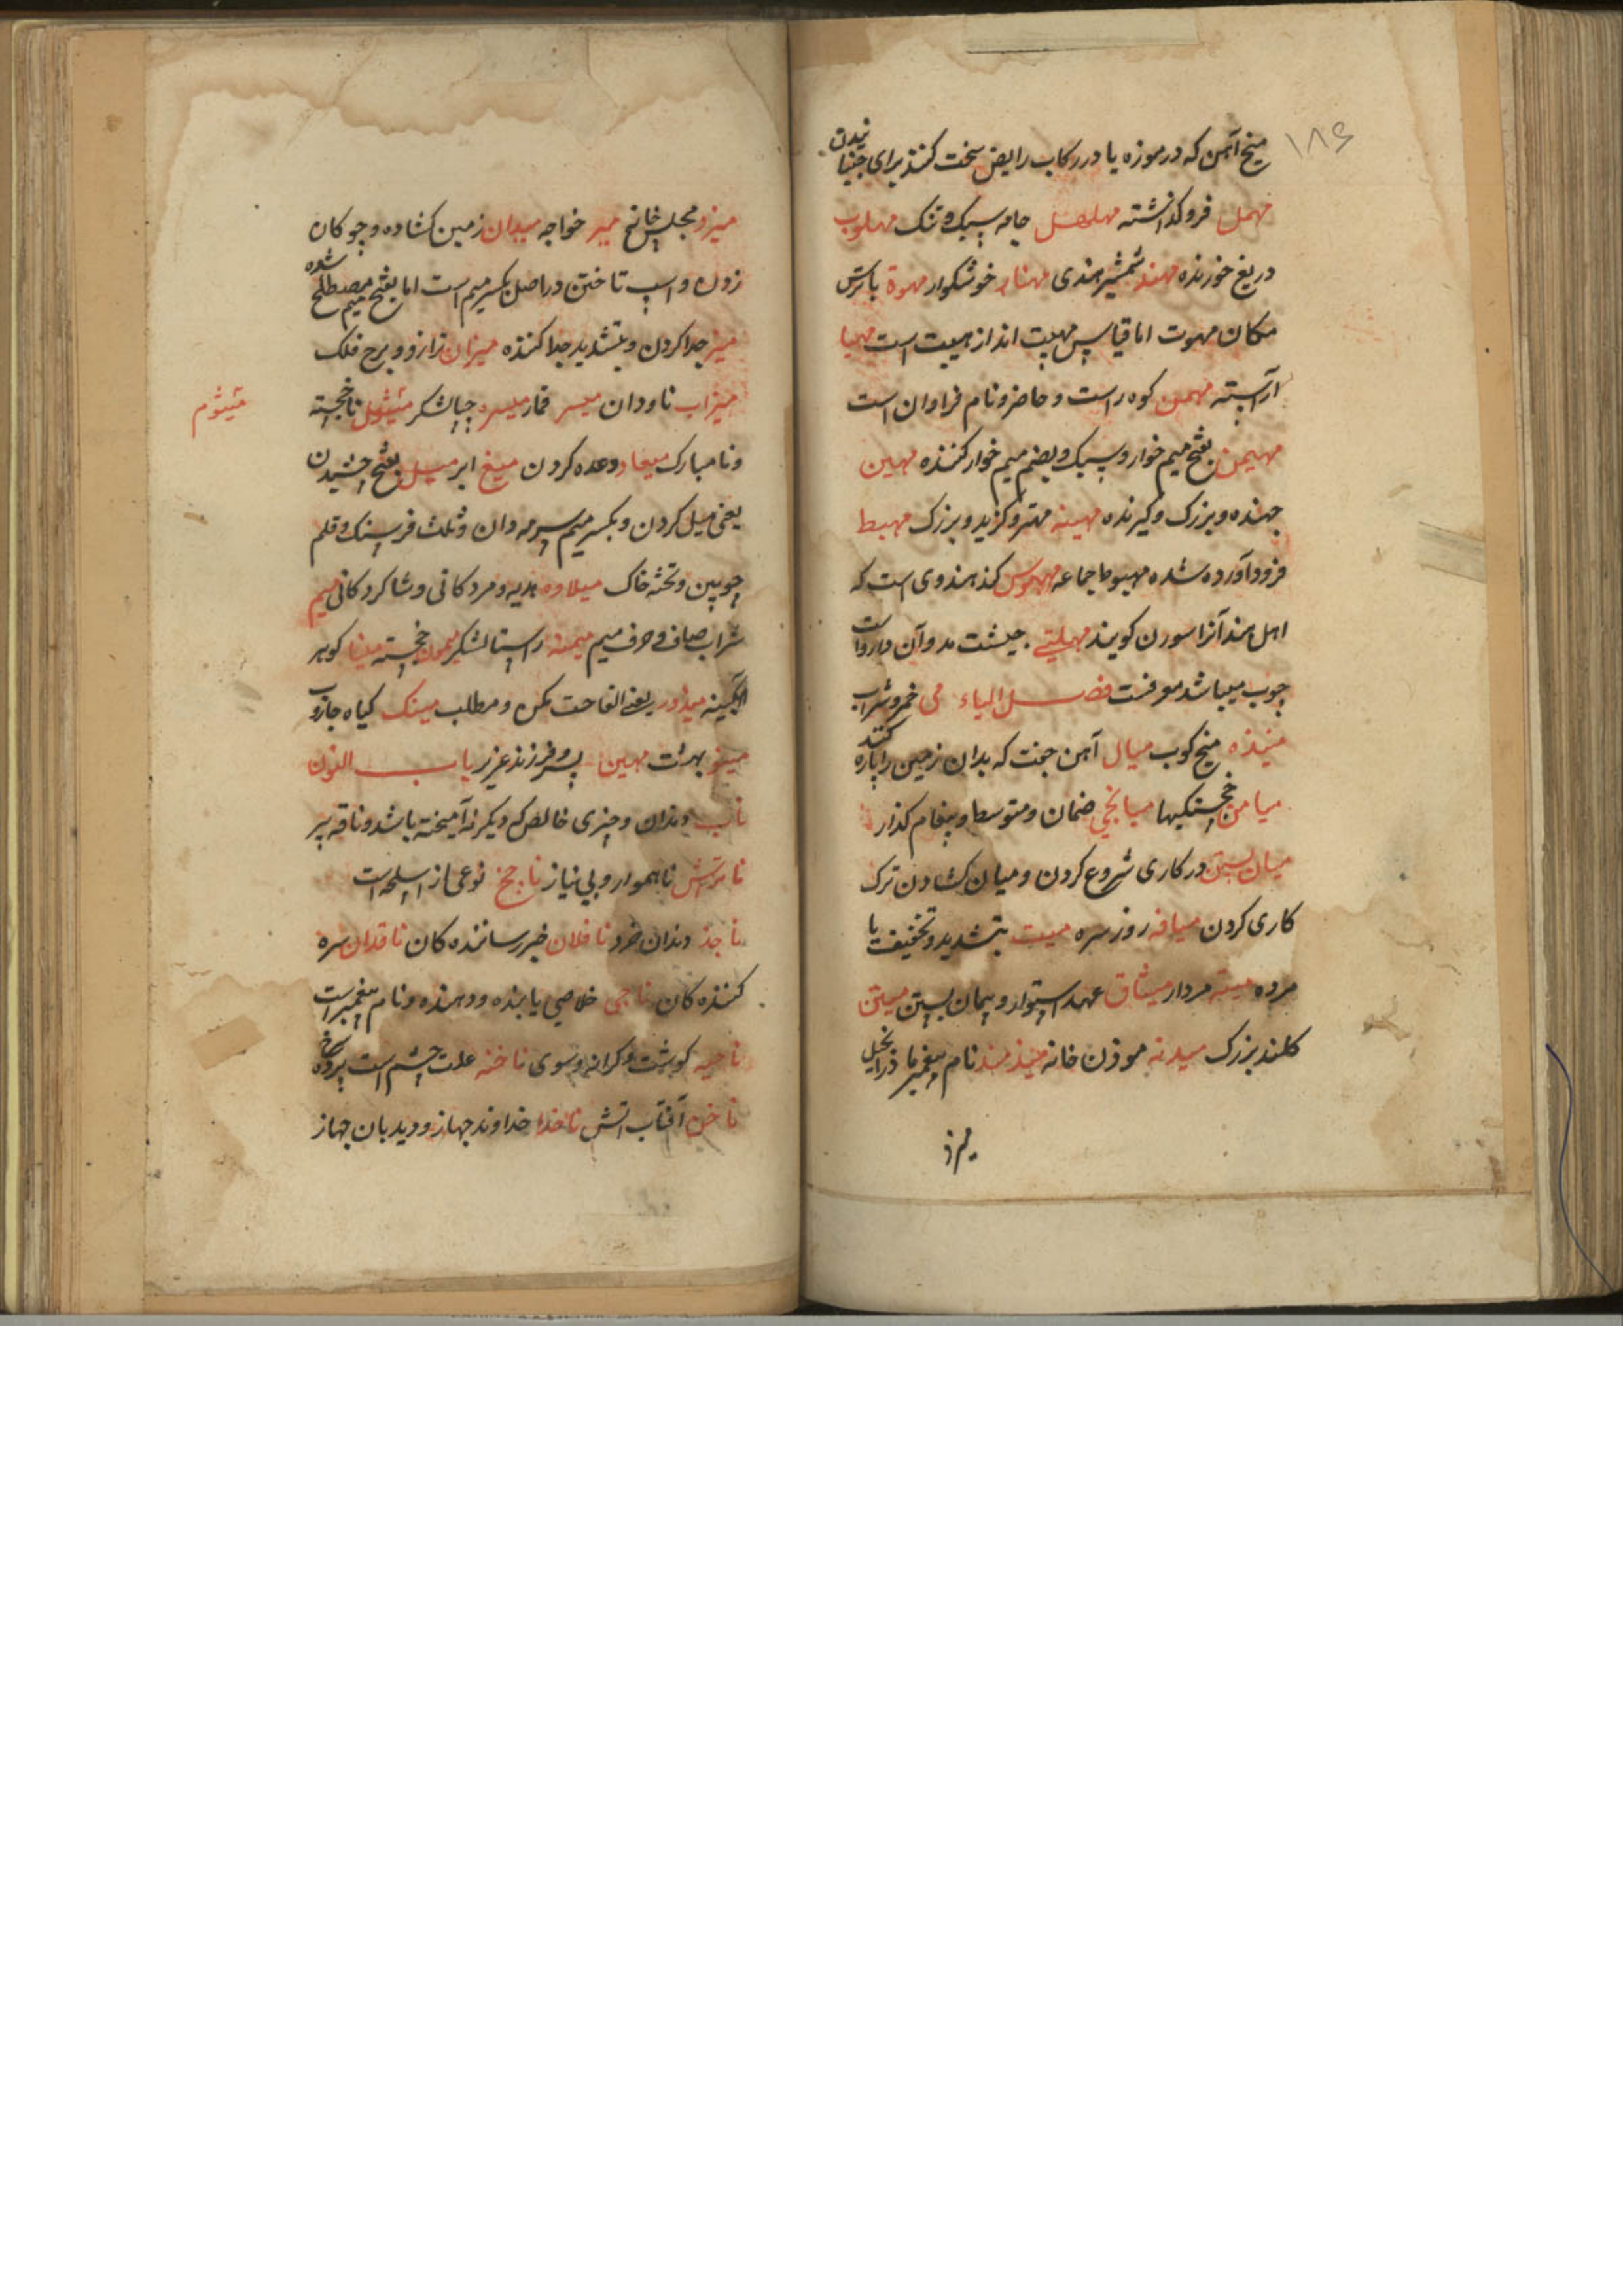 ۱۸۶
میخ آهن که در موزه یا در رکاب رایض سخت کنند برای جنبانیدن
مهمل فرو کذاشته مهلهل جامه سبک و تنک مهلوب
دریغ خورنده مهند شمشیر هندی مهناء خوشکوار مهوة با ترس
مکان مهوت اما قیاس مهیبت انداز هیبت است مهیا
آراسته مهیمن کوه راست و حاضر و نام فراوان است
مهیمن بفتح میم خوار و سبک و بضم میم خوار کننده مهین
جهنده و بزرک و کیرنده مهینه مهتر و کزید و بزرک مهبط
فرود آورده شده مهبوط جماعه مهموس کند هندوی است که
اهل هند آنرا سورن کویند مهلیتی جیشت مد و آن داروا ست
چوب میباشد معرفت فصل الیاء می خمر و شراب
میخ کوب میال آهن جفت که بدان زمین را پاره کنند
میامن خجستکیها میانجی ضمان و متوسط و پیغام کذار
میان بستن در کاری شروع کردن و میان کشادن ترک
کاری کردن میافه روز سره میت بتشدید و تخفیف یا
مرده میته مردار میثاق عهد استوار و پیمان بستن میتن
کلند بزرک میدنه موذن خانه میذمند نام پیغمبر ما در انجیل
میزد
میزد مجلس خانج میر خواجه میدان زمین کشاده و چوکان
زدن و اسپ تاختن در اصل بکسر میم است اما بفتح میم مصطلح شده
میز جدا کردن و بتشدید جدا کننده میزان ترازو و برج فلک
میزاب ناودان میسر قمار میسره چپا لشکر میثول ناخجسته
میثوم
و نامبارک میعاد وعده کردن میغ ابر میل بفتح چشیدن
یعنی میل کردن و بکسر میم سرمه دان و ثلث فرسنک و قلم
چوبین و تخته خاک میلاوه هدیه و مردکانی و شاکردکانی میم
شراب صافی و حرف میم میمنه راستا لشکر میمون خجسته مینا کوهر
آبکینه میذور یعنی الفاحت مکن و مطلب مینک کیاه جاروب
مینو بهشت مهین پسر و فرزند عزیز باب النون
ناب دندان و چیزی خالص که دیکر نه آمیخته باشد و ناقه پیر
ناتراش ناهموار و بی نیاز ناچخ نوعی از اسلحه است
ناجذ دندان خرد ناقلان خبر رساننده کان ناقدان سره
کننده کان ناجی خلاصی یابنده و دهنده و نام پیغمبر است
ناحیه کوشت و کرانه و سوی ناخنه علت چشم است پرده سرخ
ناخن آفتاب اتش ناخدا خداوند جهاز و دیدبان جهاز